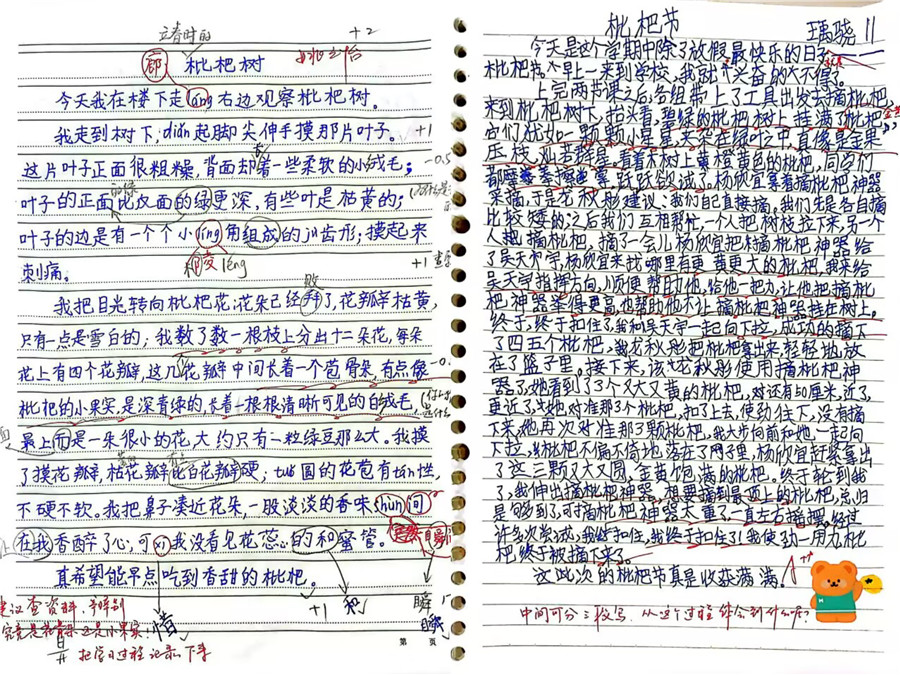 立春时的
+2
廊
枇杷树
今天我在楼下走láng右边观察枇杷树。
我走到树下,diǎn起脚尖伸手摸那片叶子。
+1
这片叶子正面很粗糙,背面却有一些柔软的小绒毛;
-0.5
叶子的正面比反面的绿更深,有些叶是枯黄的;
叶子的边是有一个个小líng角组成的jù齿形;摸起来
刺痛。
棱 léng
+1
我把目光转向枇杷花,花朵已经拜了,花瓣枯黄,
败
只有一点是雪白的;我数了数一根枝上分出十二朵花,每朵
花上有四个花瓣,这几花瓣中间长着一个苞骨朵,有点像
枇杷的小果实,是深青绿的,长着一根根清晰可见的白绒毛,
最上面是一朵很小的花,大约只有一粒绿豆那么大。我摸
了摸花瓣,枯花瓣比白花瓣硬,tuǒ圆的花苞有tán性,
不硬不软。我把鼻子凑近花朵,一股淡淡的香味shùn间
在我香醉了心,可xī我没看见花蕊的和蜜管。
真希望能早点吃到香甜的枇杷。
+1
积
瞬
建议查资料,
究竟是花骨朵还是小果实!
惜
把学习过程记录下来
第 页
枇杷节
璃骁 11
今天是这个学期中除了放假,最快乐的日子
枇杷节。早上一来到学校,我就兴奋的不得了。
上完两节课之后,各组带上了工具出发去摘枇杷,
来到枇杷树下,抬头看,碧绿的枇杷树上挂满了枇杷,
它们犹如一颗颗小星星,夹杂在绿叶中,真像是金果
压枝,灿若群星。看着木树上黄橙黄色的枇杷,同学们
都摩拳擦掌,跃跃欲试。杨欣宜拿着摘枇杷神器
来摘,于是龙秋彤建议:我们自己直接摘,我们先是各自摘
比较矮的;之后我们互相帮忙,一个人把树枝拉下来,另一个
人把摘枇杷。摘了一会儿杨欣宜把摘枇杷神器给
了吴天宇,杨欣宜来找哪里有更黄更大的枇杷,我来给
吴天宇指挥方向,顺便帮助他,给他一把力,让他把摘枇
杷神器举得更高,也帮助他不让摘枇杷神器挂在树上。
终于,终于扣住了,我和吴天宇一起向下拉,成功的摘下
了四五个枇杷,我龙秋彤把枇杷拿出来,轻轻地放
在了篮子里。接下来,该龙秋彤使用摘枇杷神
器了,她看到了3个又大又黄的枇杷,对还有50厘米,近了
更近了,她对准那3个枇杷,扣了上去,使劲往下,没有摘
下来,她再次对准那3颗枇杷,我大步向前和她,一起向
下拉,枇杷不偏不倚地落在了网子里,杨欣宜赶紧拿出
了这三颗又大又圆,金黄饱满的枇杷。终于轮到我
了,我伸出摘枇杷神器,想要摘到最顶上的枇杷,总归
是够到了,可摘枇杷神器太重了,一直左右摇摆,经过
许多次尝试,我终于扣住,我终于扣住了!我使劲一用力,枇
杷终于被摘下来了。
这次的枇杷节真是收获满满。
A++
中间可分三段写,从这个过程体会到什么呢?